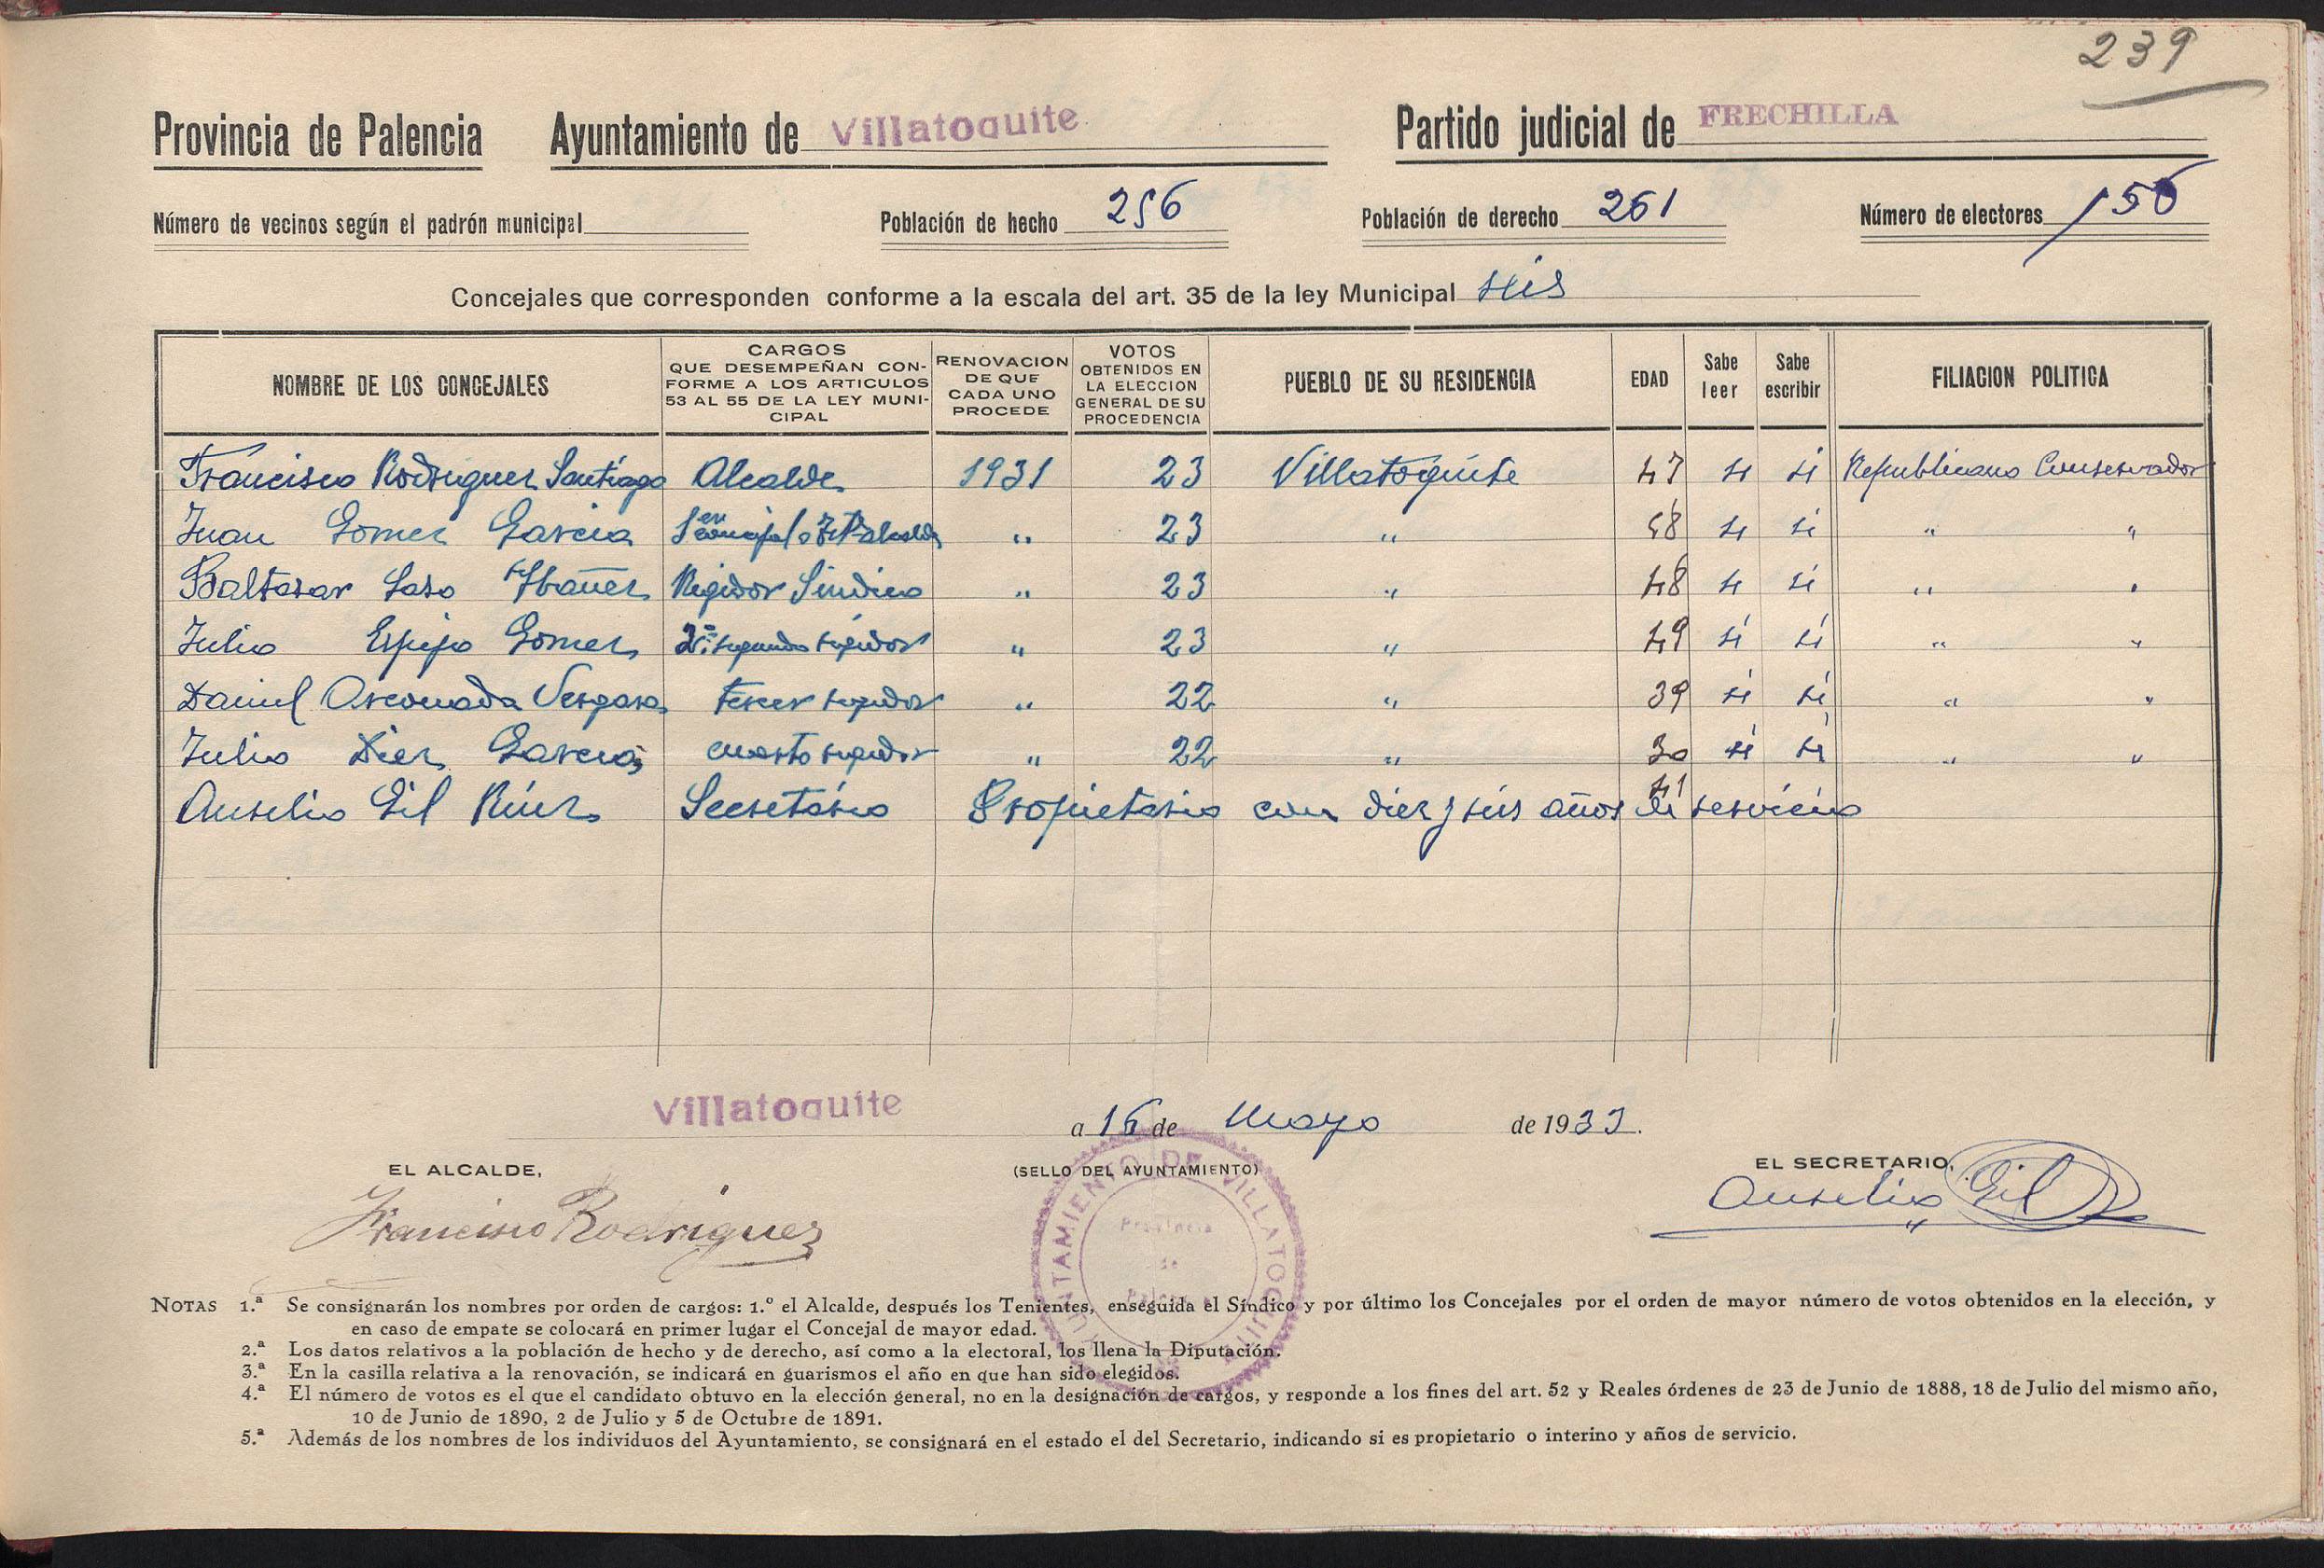 239
Provincia de Palencia Ayuntamiento de Villatoquite Partido judicial de FRECHILLA
Número de vecinos según el padrón municipal Población de hecho 256 Población de derecho 261 Número de electores 156
Concejales que corresponden conforme a la escala del art. 35 de la ley Municipal seis
NOMBRE DE LOS CONCEJALES CARGOS QUE DESEMPEÑAN CONFORME A LOS ARTICULOS 53 AL 55 DE LA LEY MUNICIPAL RENOVACION DE QUE CADA UNO PROCEDE VOTOS OBTENIDOS EN LA ELECCION GENERAL DE SU PROCEDENCIA PUEBLO DE SU RESIDENCIA EDAD Sabe leer Sabe escribir FILIACION POLITICA
Francisco Rodriguez Santiago Alcalde 1931 23 Villatoquite 47 si si Republicano Conservador
Juan Gomez Garcia 1er concejal o Tte alcalde " 23 " 58 si si " "
Baltasar Laso Ibañez Regidor Sindico " 23 " 48 si si " "
Julio Espejo Gomez segundo regidor " 23 " 49 si si " "
Daniel Arconada Vergara tercer regidor " 22 " 39 si si " "
Julio Diez Garcia cuarto regidor " 22 " 30 si si " "
Auselio Gil Secretario Propietario con diez y seis años de servicio 41
Villatoquite a 16 de Mayo de 1933.
EL ALCALDE, (SELLO DEL AYUNTAMIENTO) EL SECRETARIO,
Francisco Rodriguez Auselio Gil
AYUNTAMIENTO DE VILLATOQUITE
Provincia de Palencia
NOTAS 1.ª Se consignarán los nombres por orden de cargos: 1.º el Alcalde, después los Tenientes, enseguida el Síndico y por último los Concejales por el orden de mayor número de votos obtenidos en la elección, y
en caso de empate se colocará en primer lugar el Concejal de mayor edad.
2.ª Los datos relativos a la población de hecho y de derecho, así como a la electoral, los llena la Diputación.
3.ª En la casilla relativa a la renovación, se indicará en guarismos el año en que han sido elegidos.
4.ª El número de votos es el que el candidato obtuvo en la elección general, no en la designación de cargos, y responde a los fines del art. 52 y Reales órdenes de 23 de Junio de 1888, 18 de Julio del mismo año,
10 de Junio de 1890, 2 de Julio y 5 de Octubre de 1891.
5.ª Además de los nombres de los individuos del Ayuntamiento, se consignará en el estado el del Secretario, indicando si es propietario o interino y años de servicio.